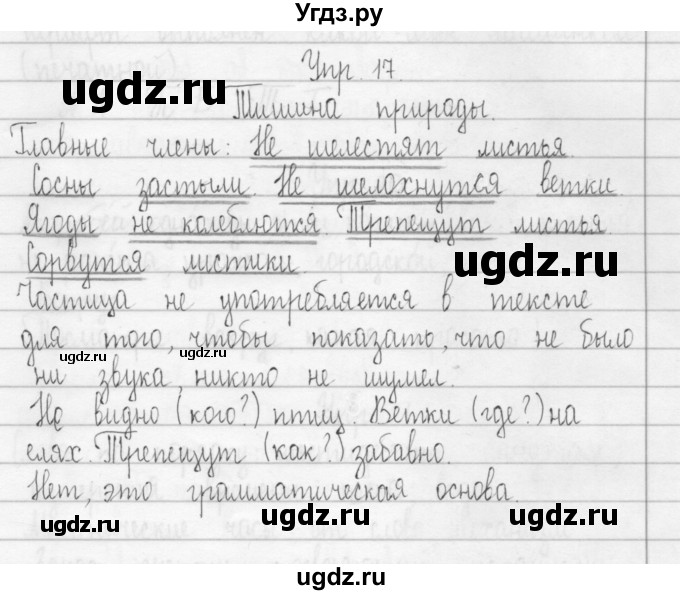 Угдз.ру
Упр. 17.
ugdz.ru ugdz.ru
Тишина природы.
Главные члены: Не шелестят листья.
Сосны застыли. Не шелохнутся ветки.
Ягоды не колеблются. Трепещут листья.
ugdz.ru
Сорвутся листики.
Частица не употребляется в тексте
для того, чтобы показать, что не было
ugdz.ru ugdz.ru
ни звука, никто не шумел.
Не видно (кого?) птиц. Ветки (где?) на
елях. Трепещут (как?) забавно.
Нет, это грамматическая основа.
ugdz.ru ugdz.ru ugdz.ru
ugdz.ru